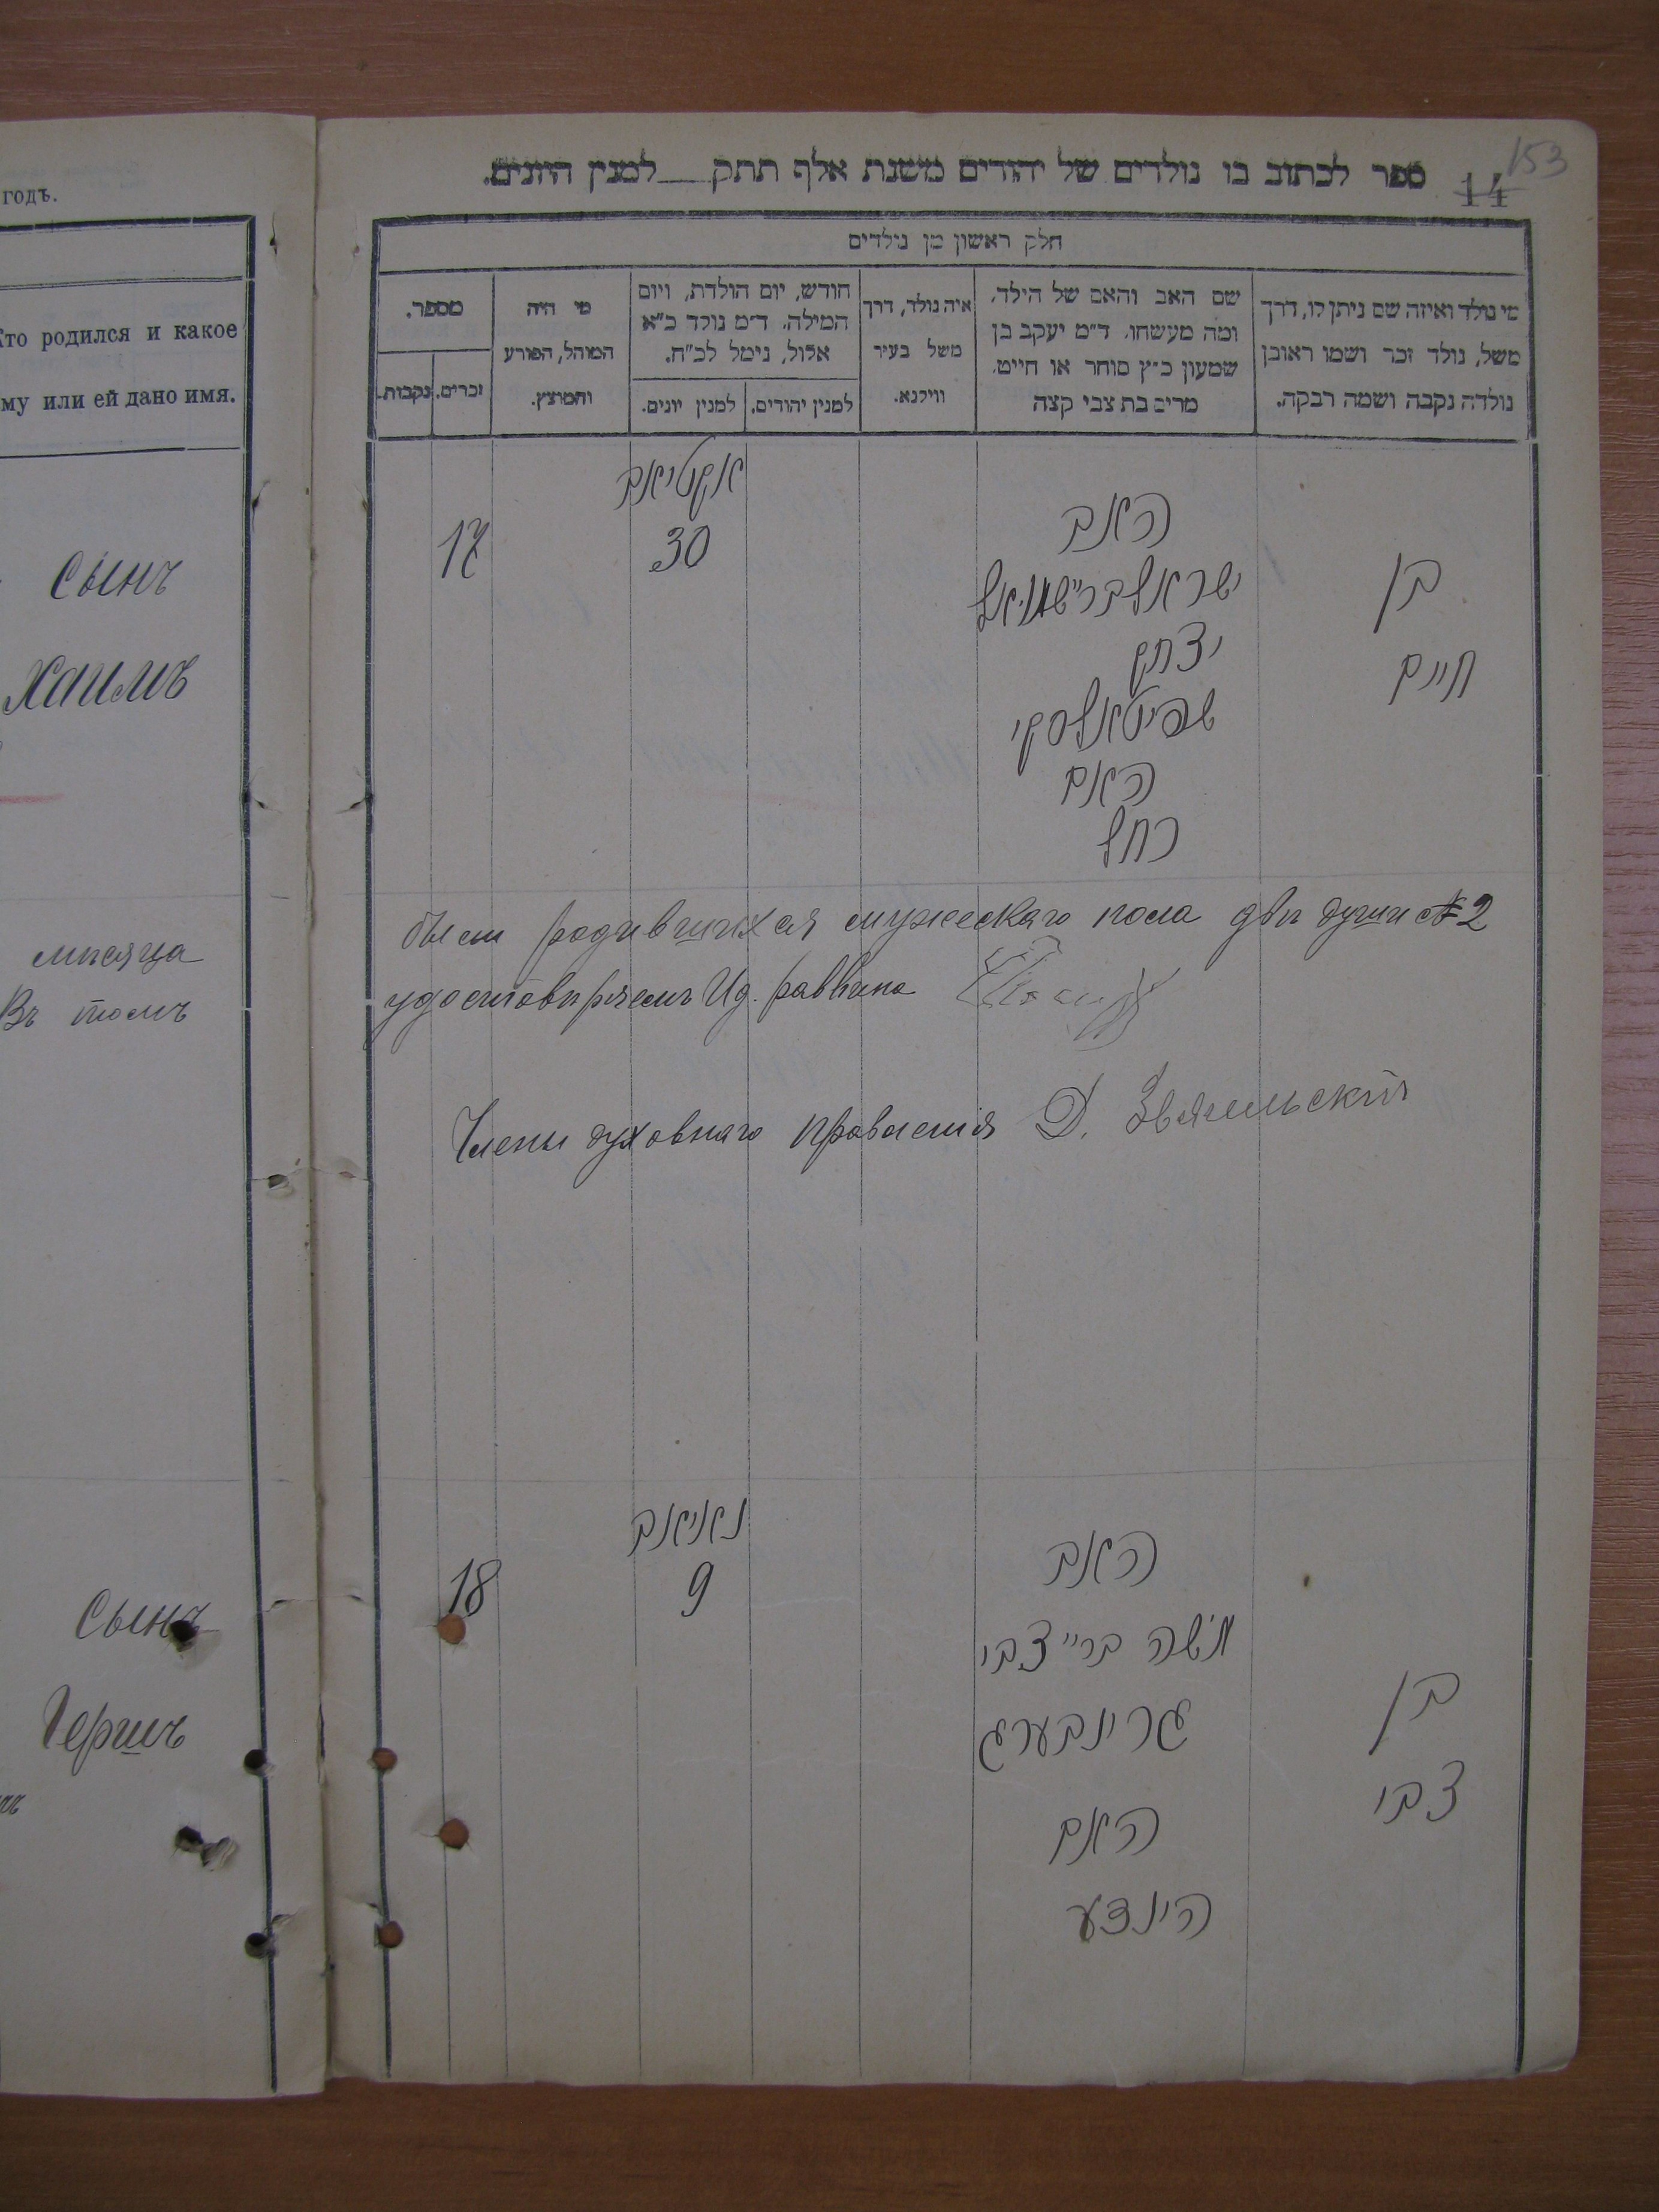 годъ.
Кто родился и какое
ему или ей дано имя.
Сынъ
Хаимъ
мѣсяца
Въ томъ
Сынъ
Гершъ
153
14
ספר לכתוב בו נולדים של יהודים משנת אלף תתק__למנין היונים.
חלק ראשון מן נולדים
מי נולד ואיזה שם ניתן לו, דרך
משל, נולד זכר ושמו ראובן
נולדה נקבה ושמה רבקה.
שם האב והאם של הילד,
ומה מעשהו. ד"מ יעקב בן
שמעון כ"ץ סוחר או חייט,
מרים בת צבי קצה
איה נולד, דרך
משל בעיר
ווילנא.
חודש, יום הולדת, ויום
המילה. ד"מ נולד כ"א
אלול, נימל לכ"ח.
למנין יהודים.
למנין יונים.
מי היה
המוהל, הפורע
והמוצץ.
מספר.
זכרים.
נקבות.
בן
חיים
האב
ישראל בר"
יצחק
שפיטאלסקי
האם
רחל
אקטיאב
30
17
были родившихся мужескаго пола двѣ души № 2
удостовѣряемъ Ид. раввина
Члены духовнаго правленія Д. Звягельскій
בן
צבי
האב
משה בר" צבי
גרינבערג
האם
הינצע
נאיאב
9
18